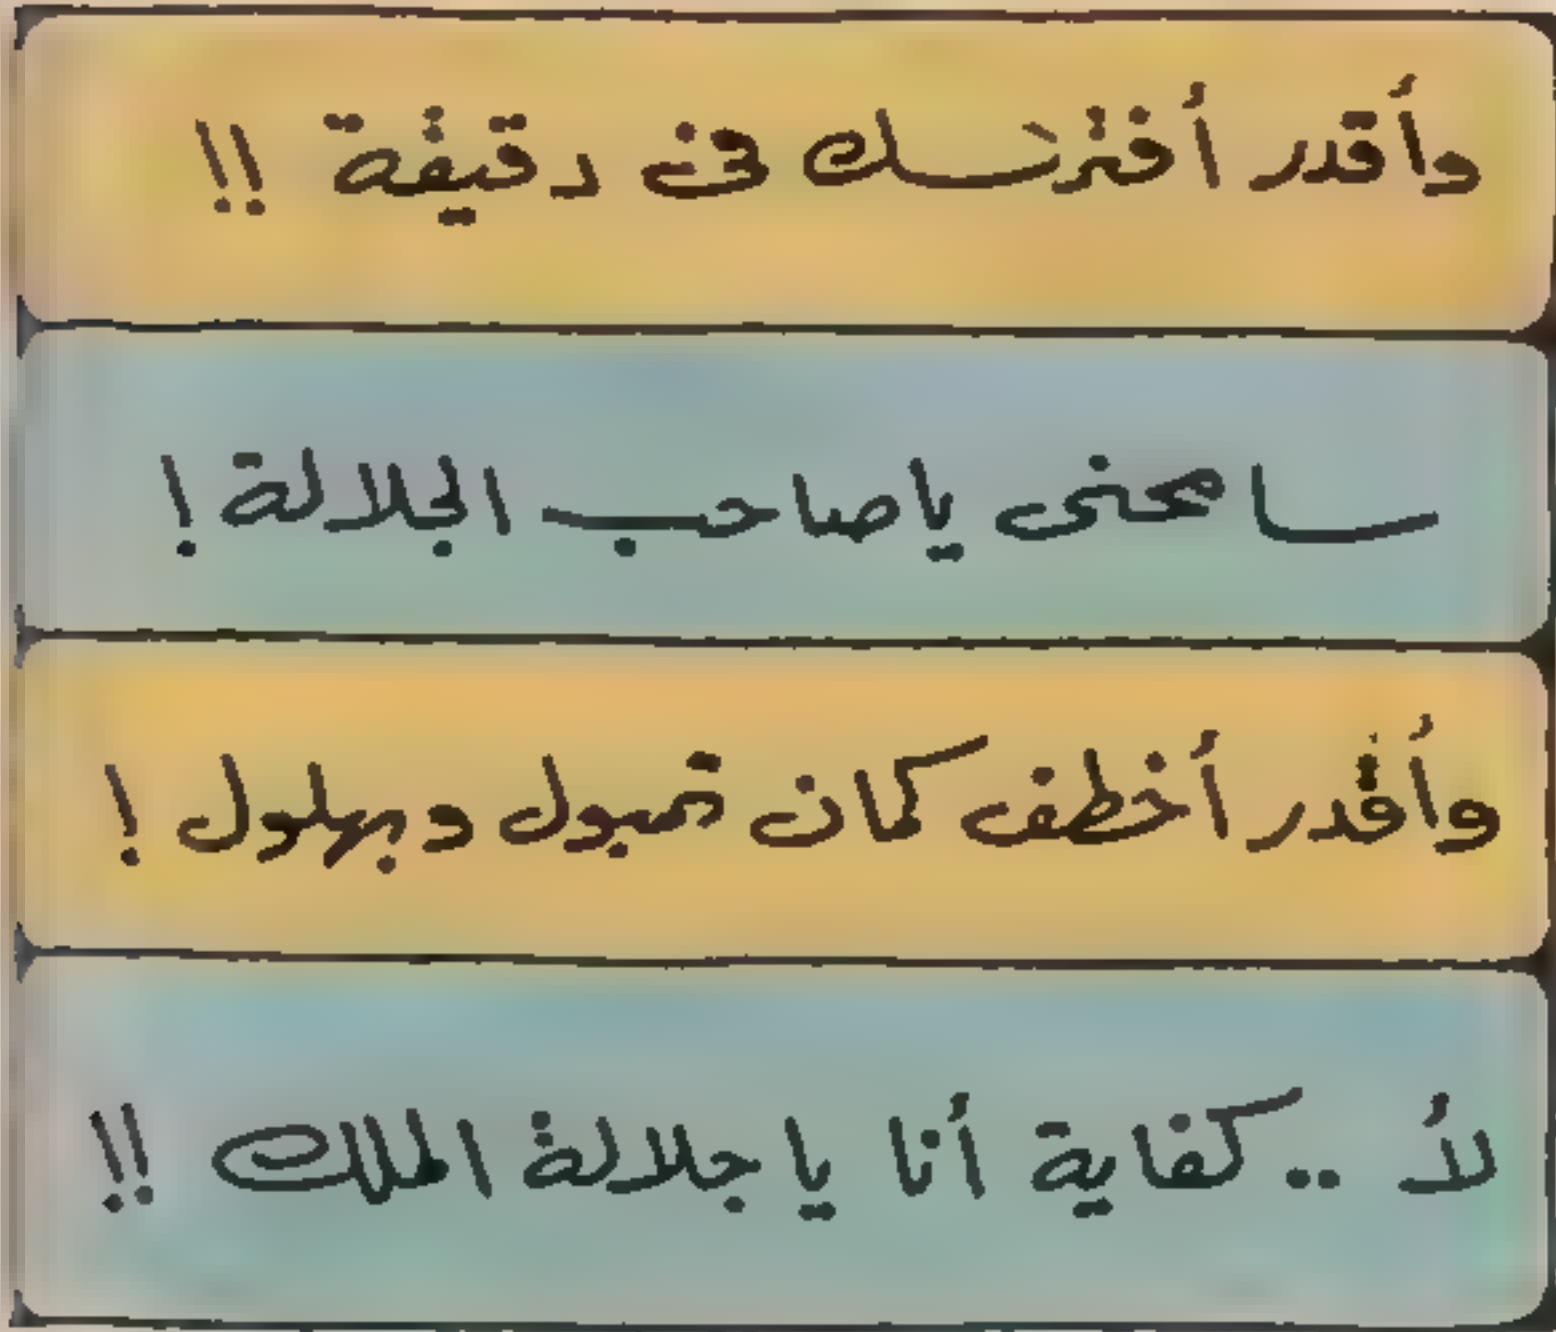 وأقدر أفترسك فى دقيقة !!
سامحنى ياصاحب الجلالة !
وأقدر أخطف كمان تمبول وبهلول !
لأ .. كفاية أنا يا جلالة الملك !!